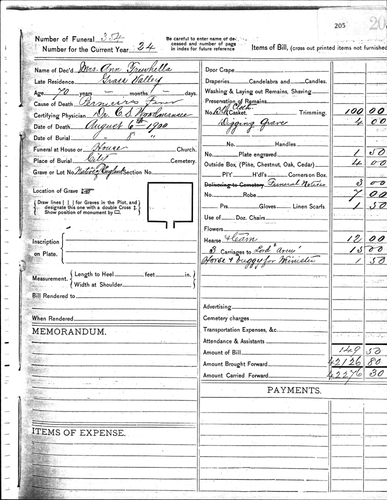 205
Number of Funeral 354
Number for the Current Year 24
Be careful to enter name of deceased and number of page in index for future reference
Items of Bill, (cross out printed items not furnished
Name of Dec'd Mrs. Ann Trewhella
Late Residence Grass Valley
Age 70 years months days
Cause of Death Pernicious Fever
Certifying Physician Dr. C. S.
Date of Death August 6th 1900
Date of Burial " 8 "
Funeral at House or House Church.
Place of Burial City Cemetery.
Grave or Lot No. Native England Section No.
Location of Grave
Draw lines | | for Graves in the Plot, and designate this one with a double Cross. Show position of monument by
Inscription on Plate.
Measurement. Length to Heel feet in.
Width at Shoulder
Bill Rendered to
When Rendered
MEMORANDUM.
ITEMS OF EXPENSE.
Door Crape
Draperies Candelabra and Candles.
Washing & Laying out Remains, Shaving
Preserving Remains
No. Cloth Casket Trimming. 100 00
Digging Grave 4 00
No. Handles
Plate engraved 1 50
Outside Box, (Pine, Chestnut, Oak, Cedar) 4 00
PIY H'd'l's Cornerson Box.
Delivering to Cemetery Funeral Notices 3 00
No. Robe 7 00
Prs. Gloves Linen Scarfs 1 50
Use of Doz. Chairs
Flowers
Hearse & team 12 00
3 Carriages to 15 00
Horse & buggy for Minister 1 50
Advertising
Cemetery charges
Transportation Expenses, &c.
Attendance & Assistants
Amount of Bill 149 50
Amount Brought Forward 42126 80
Amount Carried Forward 42276 30
PAYMENTS.